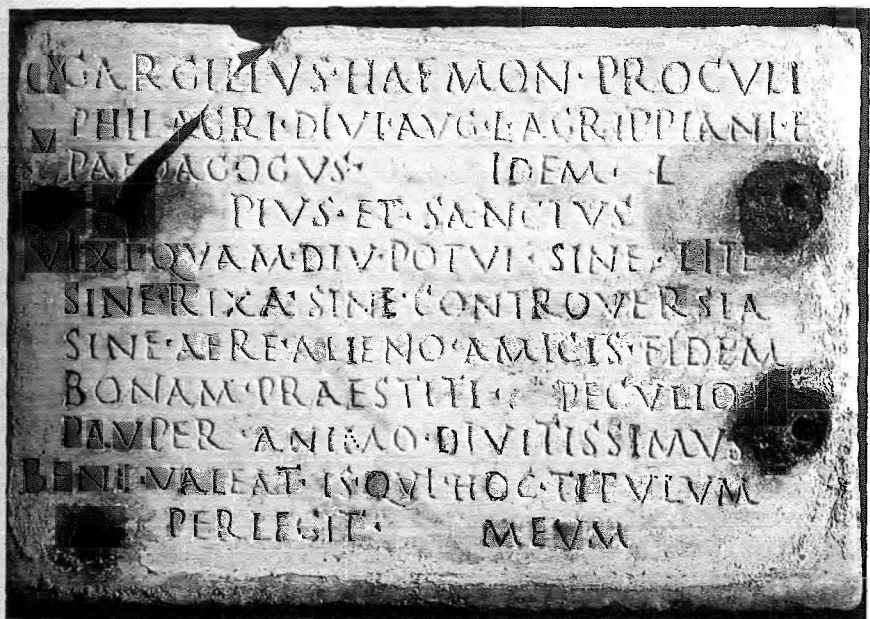 C·GARGILIVS·HAEMON·PROCVLI
PHILAGRI·DIVI·AVG·L·AGRIPPIANI·F
PAEDAGOGVS· IDEM· L
PIVS·ET·SANCTVS
VIXI·QVAM·DIV·POTVI·SINE·LITE
SINE·RIXA·SINE·CONTROVERSIA
SINE·AERE·ALIENO·AMICIS·FIDEM
BONAM·PRAESTITI· PECVLIO
PAVPER·ANIMO·DIVITISSIMVS
BENE·VALEAT·IS·QVI·HOC·TITVLVM
PERLEGIT· MEVM